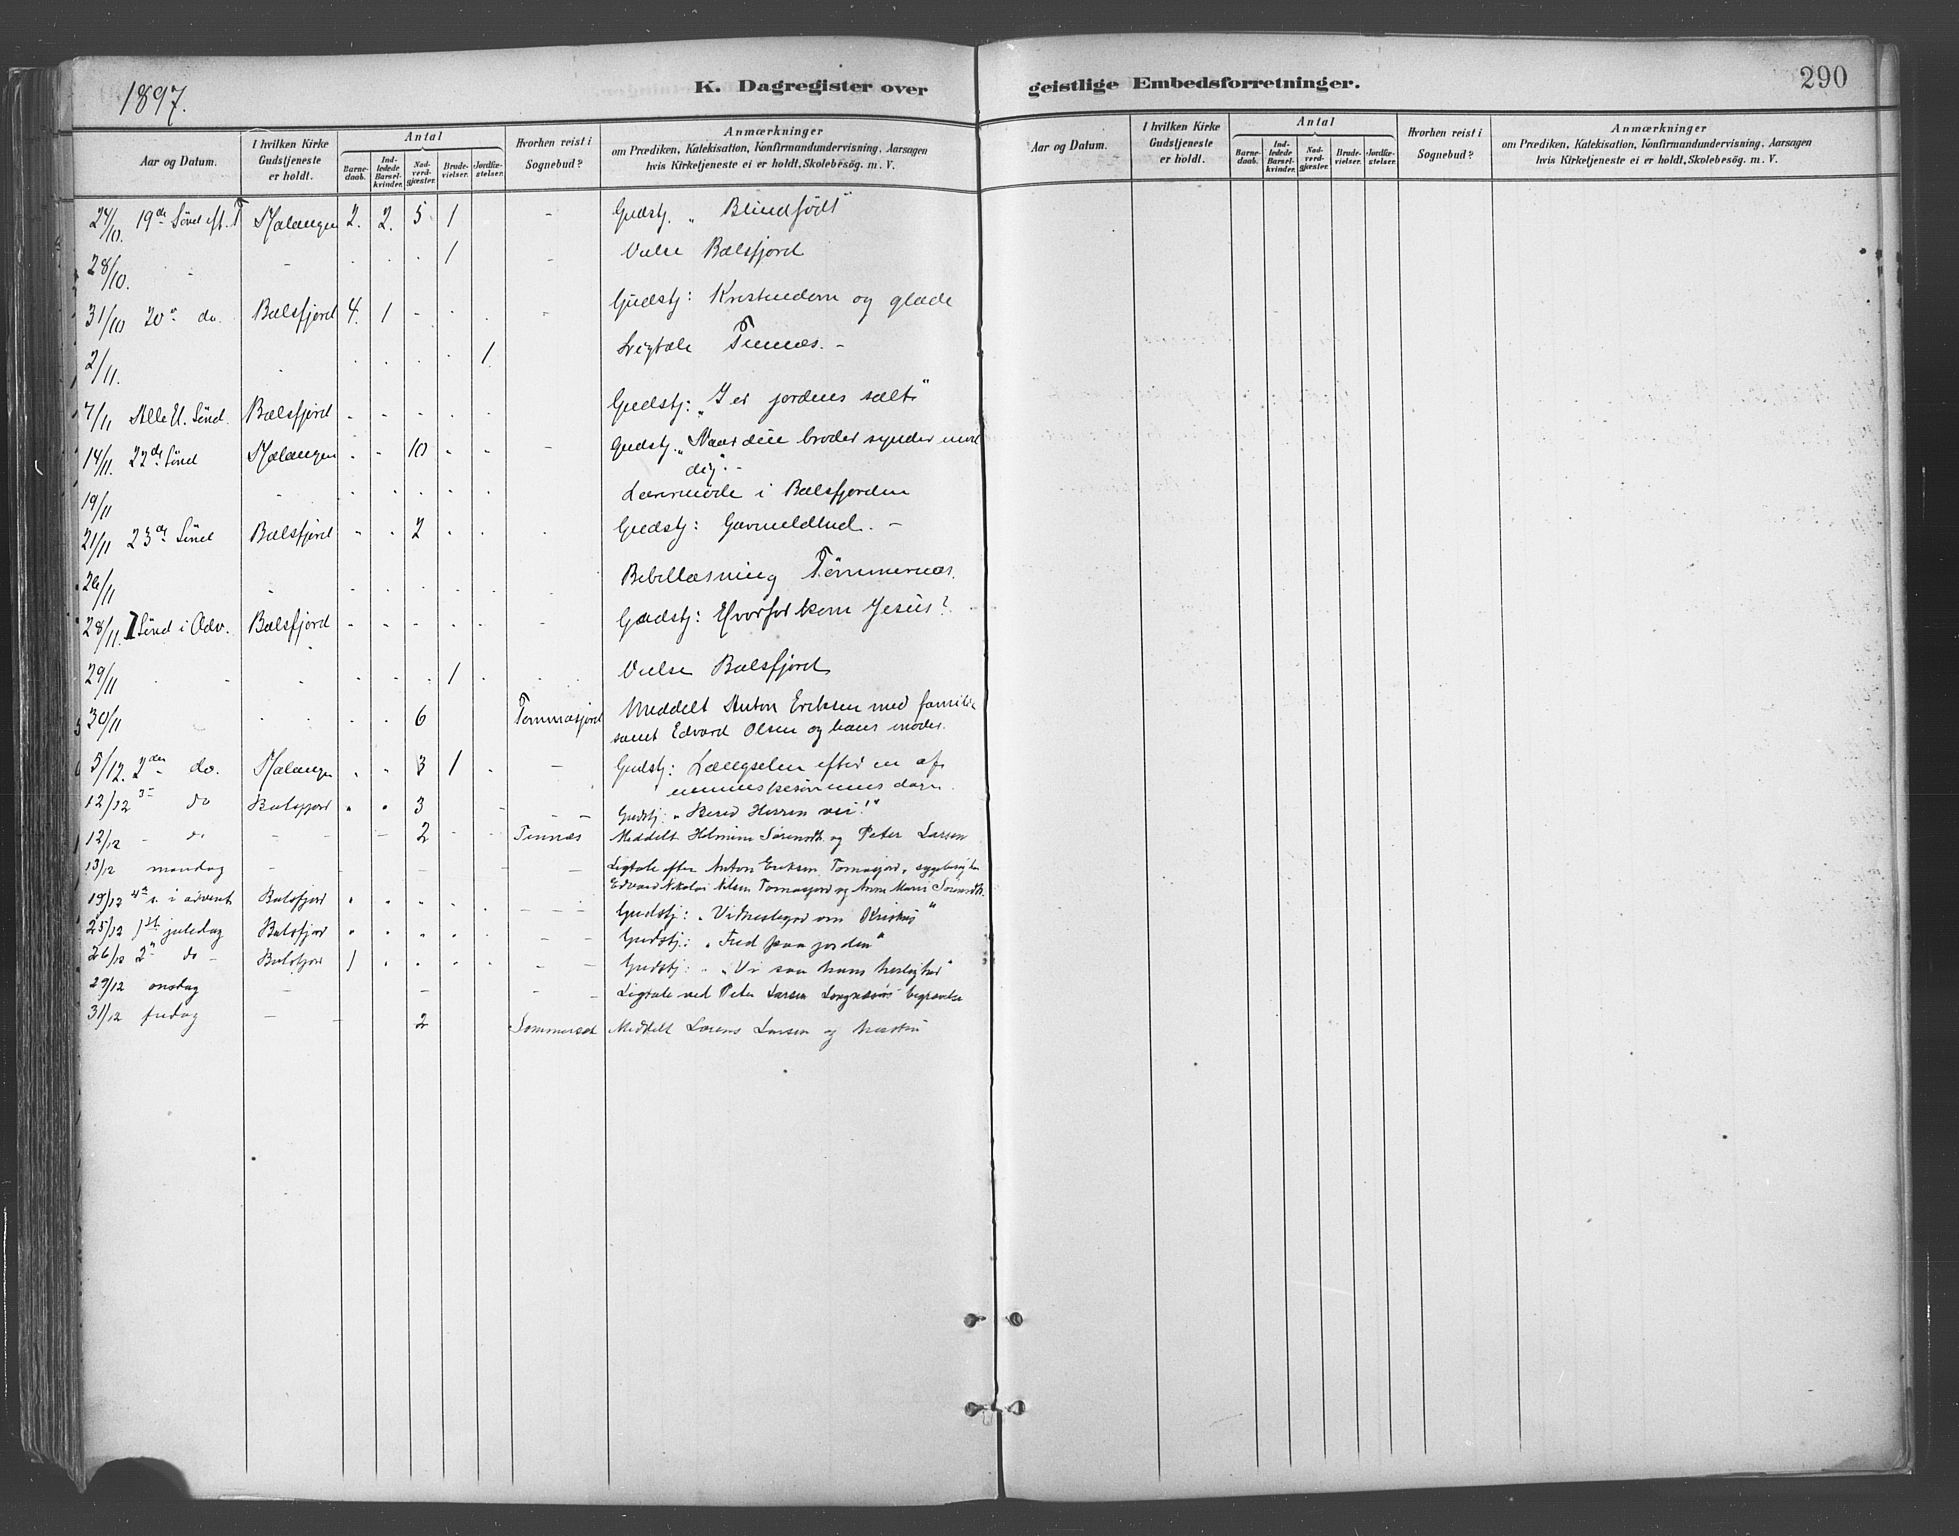 1897.
K. Dagregister over geistlige Embedsforretninger.
290
Aar og Datum. I hvilken Kirke Gudstjeneste er holdt. Antal Barnedaab. Indledede Barselkvinder. Nadverdgjæster. Brudevielser. Jordfæstelser. Hvorhen reist i Sognebud? Anmærkninger om Prædiken, Katekisation, Konfirmandundervisning, Aarsagen hvis Kirketjeneste ei er holdt, Skolebesög. m. V.
Aar og Datum. I hvilken Kirke Gudstjeneste er holdt. Antal Barnedaab. Indledede Barselkvinder. Nadverdgjæster. Brudevielser. Jordfæstelser. Hvorhen reist i Sognebud? Anmærkninger om Prædiken, Katekisation, Konfirmandundervisning, Aarsagen hvis Kirketjeneste ei er holdt, Skolebesög. m. V.
24/10. 19de Sönd eft. T Malangen 2. 2. 5 1 - Gudstj. „Blindfødt"
28/10. 1 Vielse Balsfjord
31/10 20de do. Balsfjord 4. 1 Gudstj: Kristendom og glæde
2/11. 1 Ligtale Tennæs. -
7/11 Alle H. Sönd. Balsfjord Gudstj: „I er jordens salt"
14/11. 22de Sönd Malangen 10 Gudstj. „Naar din broder synder mod
dig". -
19/11 Lærermøde i Balsfjorden
21/11 23de Sönd Balsfjord 2 Gudstj: Gavmildhed. -
26/11 Bibellæsning Tømmernæs.
28/11. 1 Sönd i Adv. Balsfjord Gudstj: Hvorfor kom Jesus?
29/11 1 Vielse Balsfjord
30/11 6 Tommasjord Meddelt Anton Eriksen med familie
samt Edvard Olsen og hans moder.
5/12. 2den do. Malangen 3 1 - Gudstj: Længselen efter en af
menneskesønnens dage.
12/12 3die do Balsfjord 3 Gudstj: „Bered Herren vei!"
12/12 - do 2 Tennæs Meddelt og Peter Larsen
13/12 mandag Ligtale efter Anton Eriksen Tomasjord, sygebesøg hos
Edvard Nikolai Nilsen Tomasjord og Anne Marie Sörensdt.
19/12 4de s. i advent Balsfjord Gudstj: „Vidnesbyrd om Kristus"
25/12 1st juledag Balsfjord Gudstj: „Fred paa jorden"
26/12 2n do - Balsfjord 1 Gudstj: „Vi saa hans herlighed"
29/12 onsdag Ligtale ved Peter Larsen begravelse
31/12 fredag 2 Sommerset Meddelt Lorens Larsen og hustru